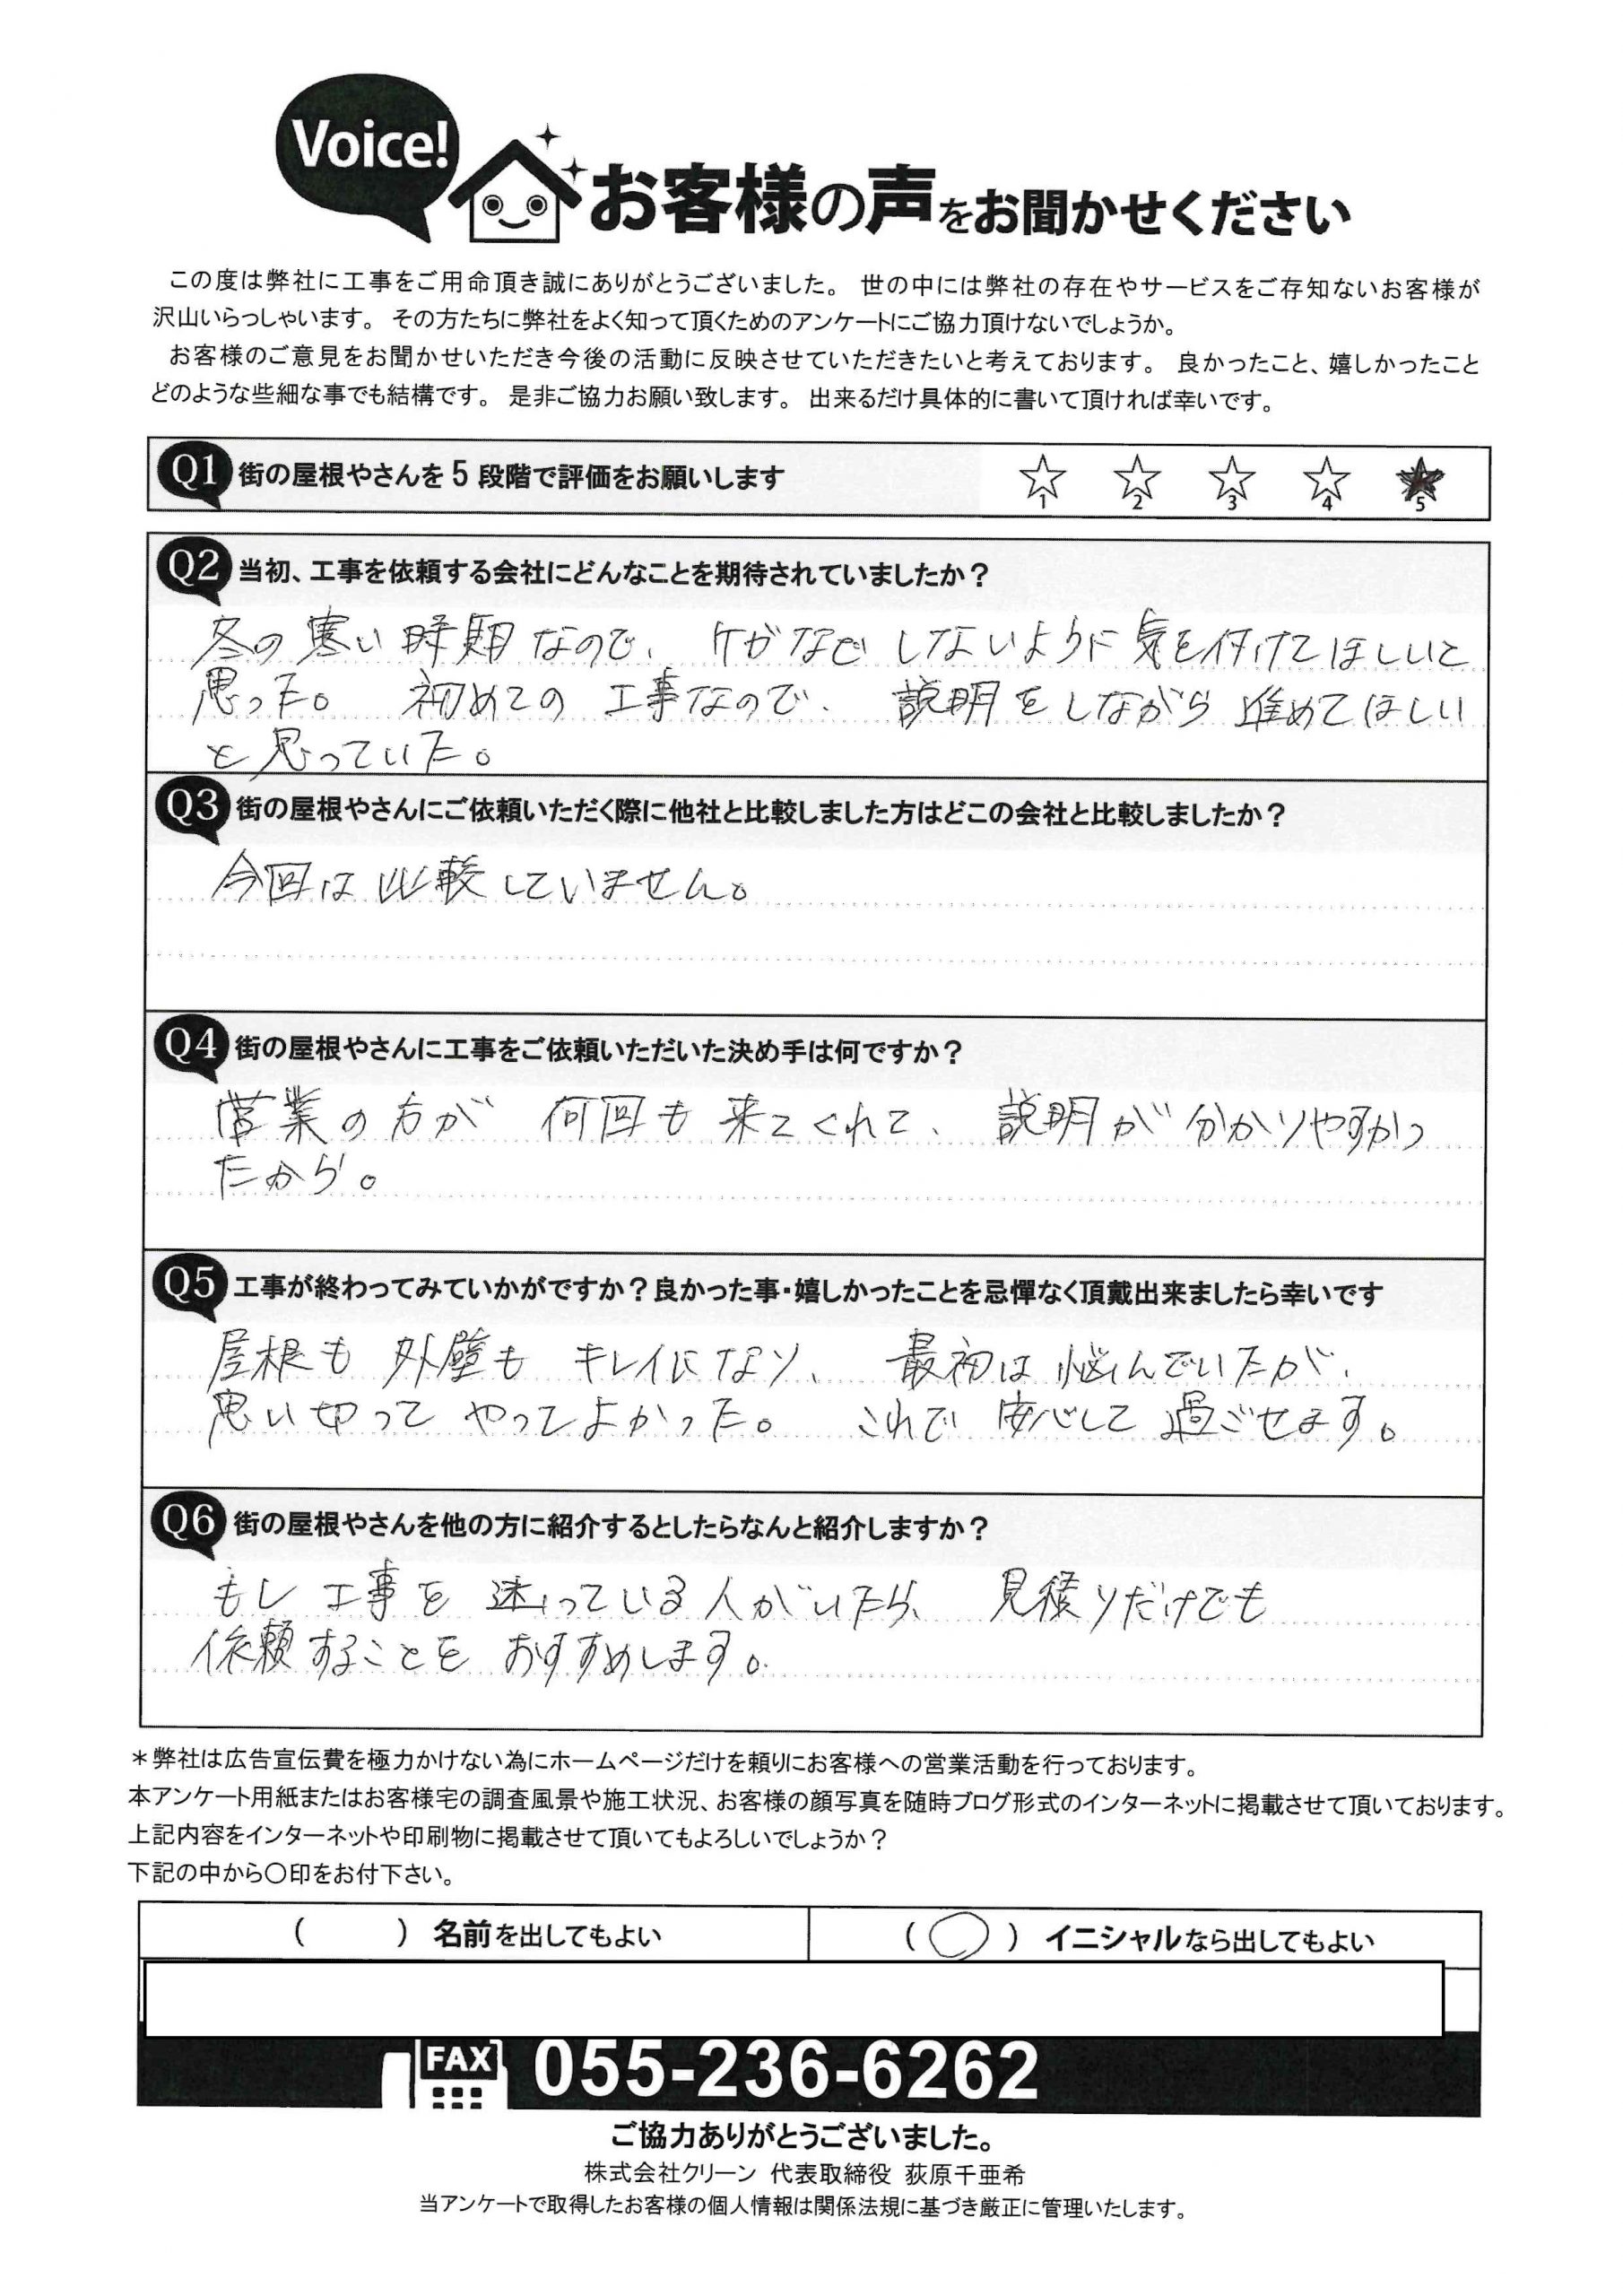 Voice!
お客様の声をお聞かせください
この度は弊社に工事をご用命頂き誠にありがとうございました。 世の中には弊社の存在やサービスをご存知ないお客様が
沢山いらっしゃいます。 その方たちに弊社をよく知って頂くためのアンケートにご協力頂けないでしょうか。
お客様のご意見をお聞かせいただき今後の活動に反映させていただきたいと考えております。 良かったこと、嬉しかったこと
どのような些細な事でも結構です。 是非ご協力お願い致します。 出来るだけ具体的に書いて頂ければ幸いです。
Q1 街の屋根やさんを 5 段階で評価をお願いします ☆1 ☆2 ☆3 ☆4 ★5
Q2 当初、工事を依頼する会社にどんなことを期待されていましたか？
冬の寒い時期なので、ケガなど しないように気を付けてほしいと
思った。 初めての 工事なので、 説明をしながら 進めてほしい
と思っていた。
Q3 街の屋根やさんにご依頼いただく際に他社と比較しました方はどこの会社と比較しましたか？
今回は比較していません。
Q4 街の屋根やさんに工事をご依頼いただいた決め手は何ですか？
営業の方が 何回も 来てくれて、 説明が分かりやすかっ
たから。
Q5 工事が終わってみていかがですか？良かった事・嬉しかったことを忌憚なく頂戴出来ましたら幸いです
屋根も 外壁も キレイになり、 最初は悩んでいたが、
思い切って やってよかった。 これで 安心して 過ごせます。
Q6 街の屋根やさんを他の方に紹介するとしたらなんと紹介しますか？
もし 工事を 迷っている人がいたら、 見積りだけでも
依頼することを おすすめします。
＊弊社は広告宣伝費を極力かけない為にホームページだけを頼りにお客様への営業活動を行っております。
本アンケート用紙またはお客様宅の調査風景や施工状況、お客様の顔写真を随時ブログ形式のインターネットに掲載させて頂いております。
上記内容をインターネットや印刷物に掲載させて頂いてもよろしいでしょうか？
下記の中から〇印をお付下さい。
（　　）名前を出してもよい （〇）イニシャルなら出してもよい
FAX 055-236-6262
ご協力ありがとうございました。
株式会社クリーン 代表取締役 荻原千亜希
当アンケートで取得したお客様の個人情報は関係法規に基づき厳正に管理いたします。